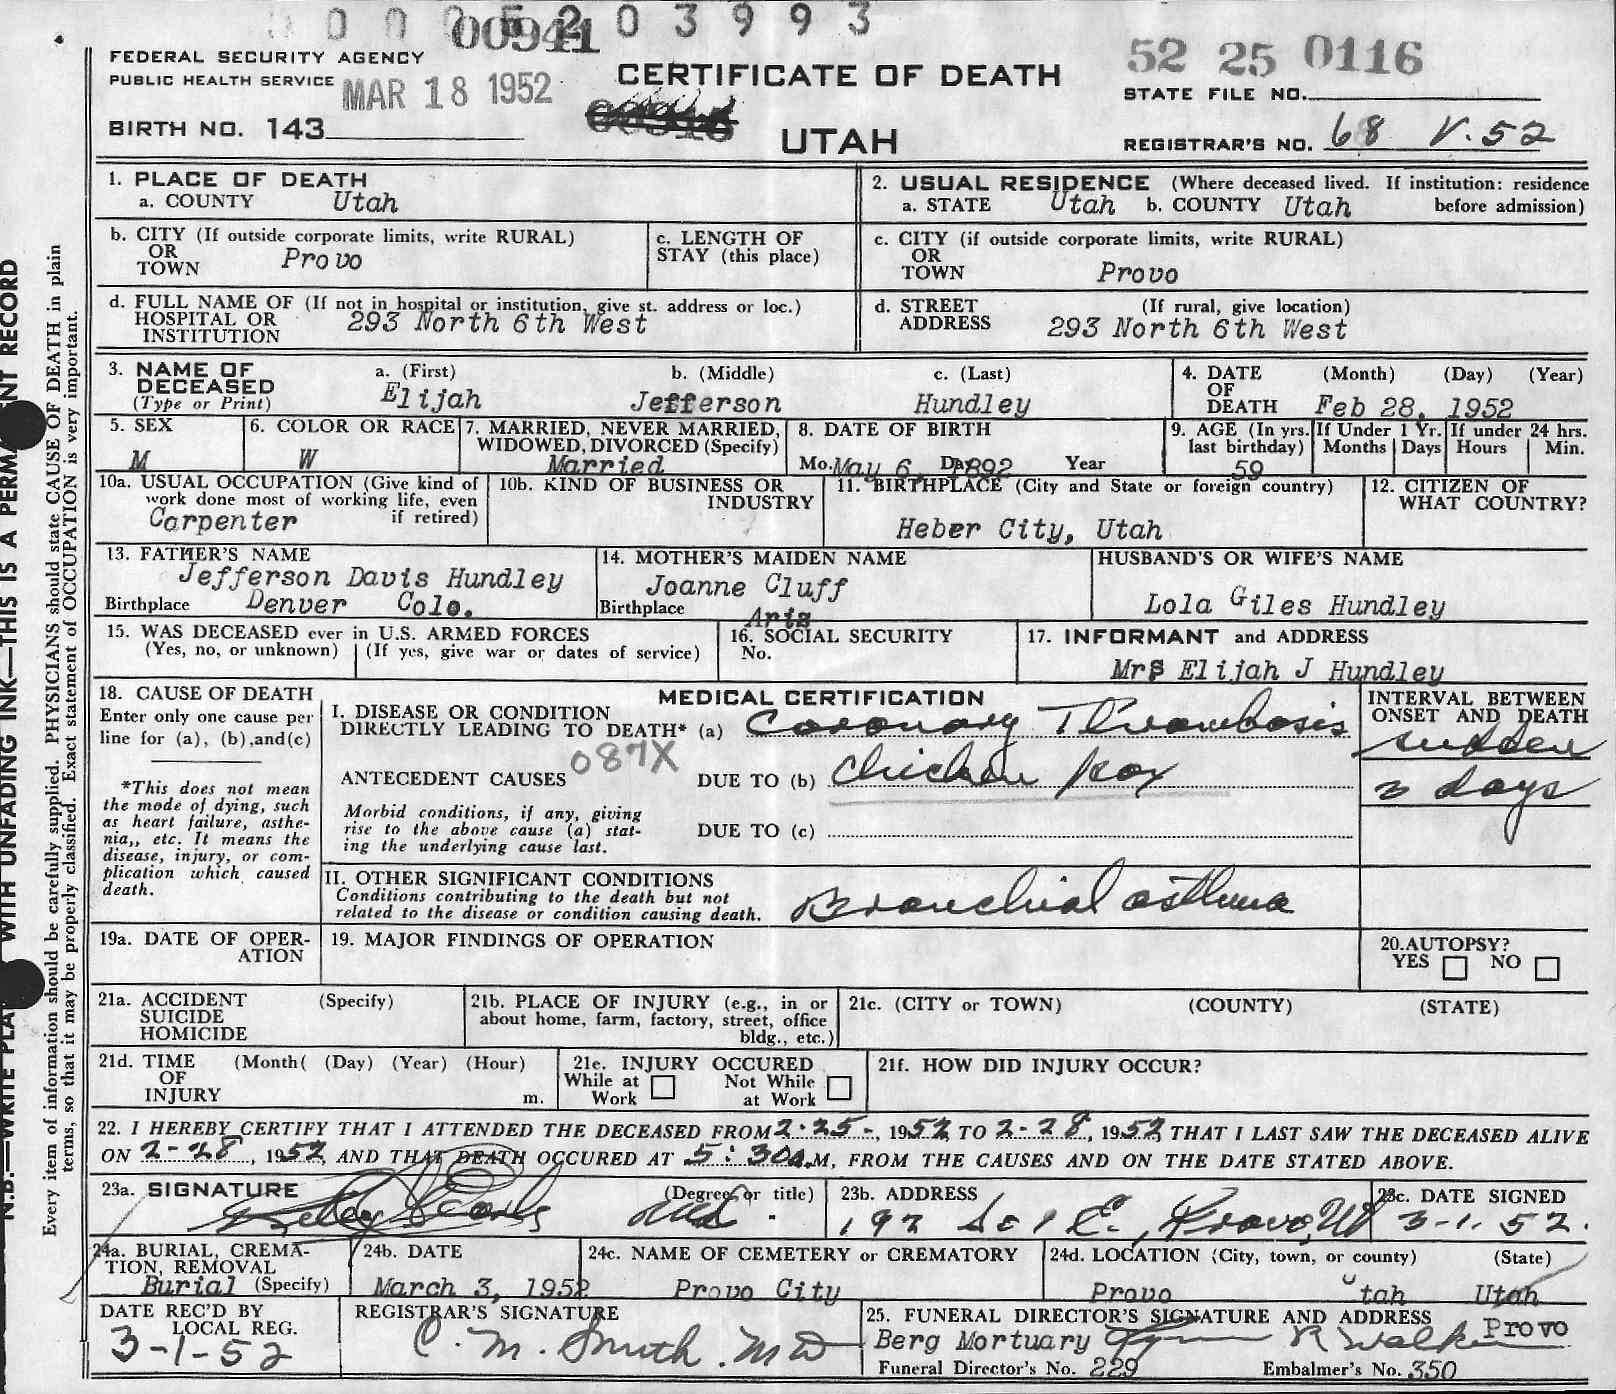 00941
FEDERAL SECURITY AGENCY
PUBLIC HEALTH SERVICE MAR 18 1952
CERTIFICATE OF DEATH
52 25 0116
STATE FILE NO.
BIRTH NO. 143
UTAH
REGISTRAR'S NO. 68 V.52
1. PLACE OF DEATH
a. COUNTY Utah
2. USUAL RESIDENCE (Where deceased lived. If institution: residence before admission)
a. STATE Utah b. COUNTY Utah
b. CITY (If outside corporate limits, write RURAL)
OR
TOWN Provo
c. LENGTH OF
STAY (this place)
c. CITY (if outside corporate limits, write RURAL)
OR
TOWN Provo
d. FULL NAME OF (If not in hospital or institution, give st. address or loc.)
HOSPITAL OR
INSTITUTION 293 North 6th West
d. STREET (If rural, give location)
ADDRESS 293 North 6th West
3. NAME OF
DECEASED
(Type or Print)
a. (First) b. (Middle) c. (Last)
Elijah Jefferson Hundley
4. DATE (Month) (Day) (Year)
OF
DEATH Feb 28, 1952
5. SEX
M
6. COLOR OR RACE
W
7. MARRIED, NEVER MARRIED,
WIDOWED, DIVORCED (Specify)
Married
8. DATE OF BIRTH
Mo. May 6, Day 1892 Year
9. AGE (In yrs.
last birthday)
59
If Under 1 Yr.
Months Days
If under 24 hrs.
Hours Min.
10a. USUAL OCCUPATION (Give kind of
work done most of working life, even
if retired)
Carpenter
10b. KIND OF BUSINESS OR
INDUSTRY
11. BIRTHPLACE (City and State or foreign country)
Heber City, Utah
12. CITIZEN OF
WHAT COUNTRY?
13. FATHER'S NAME
Jefferson Davis Hundley
Birthplace Denver Colo.
14. MOTHER'S MAIDEN NAME
Joanne Cluff
Birthplace Ariz
HUSBAND'S OR WIFE'S NAME
Lola Giles Hundley
15. WAS DECEASED ever in U.S. ARMED FORCES
(Yes, no, or unknown) (If yes, give war or dates of service)
16. SOCIAL SECURITY
No.
17. INFORMANT and ADDRESS
Mrs Elijah J Hundley
18. CAUSE OF DEATH
Enter only one cause per
line for (a), (b),and(c)
*This does not mean
the mode of dying, such
as heart failure, asthe-
nia,, etc. It means the
disease, injury, or com-
plication which caused
death.
MEDICAL CERTIFICATION
I. DISEASE OR CONDITION
DIRECTLY LEADING TO DEATH* (a) Coronary Thrombosis
087X
ANTECEDENT CAUSES DUE TO (b) Chicken pox
Morbid conditions, if any, giving
rise to the above cause (a) stat-
ing the underlying cause last.
DUE TO (c)
INTERVAL BETWEEN
ONSET AND DEATH
sudden
3 days
II. OTHER SIGNIFICANT CONDITIONS
Conditions contributing to the death but not
related to the disease or condition causing death.
Bronchial asthma
19a. DATE OF OPER-
ATION
19. MAJOR FINDINGS OF OPERATION
20. AUTOPSY?
YES NO
21a. ACCIDENT (Specify)
SUICIDE
HOMICIDE
21b. PLACE OF INJURY (e.g., in or
about home, farm, factory, street, office
bldg., etc.)
21c. (CITY or TOWN) (COUNTY) (STATE)
21d. TIME (Month( (Day) (Year) (Hour)
OF
INJURY m.
21e. INJURY OCCURED
While at Work Not While at Work
21f. HOW DID INJURY OCCUR?
22. I HEREBY CERTIFY THAT I ATTENDED THE DECEASED FROM 2-25-, 1952, TO 2-28, 1952, THAT I LAST SAW THE DECEASED ALIVE
ON 2-28, 1952, AND THAT DEATH OCCURED AT 5:30a.M, FROM THE CAUSES AND ON THE DATE STATED ABOVE.
23a. SIGNATURE (Degree or title)
23b. ADDRESS
Provo, Ut
23c. DATE SIGNED
3-1.52.
24a. BURIAL, CREMA-
TION, REMOVAL
Burial (Specify)
24b. DATE
March 3, 1952
24c. NAME OF CEMETERY or CREMATORY
Provo City
24d. LOCATION (City, town, or county) (State)
Provo Utah Utah
DATE REC'D BY
LOCAL REG.
3-1-52
REGISTRAR'S SIGNATURE
C. M. Smith. MD
25. FUNERAL DIRECTOR'S SIGNATURE AND ADDRESS
Berg Mortuary R Walker Provo
Funeral Director's No. 229 Embalmer's No. 350
Every item of information should be carefully supplied. PHYSICIANS should state CAUSE OF DEATH in plain
terms, so that it may be properly classified. Exact statement of OCCUPATION is very important.